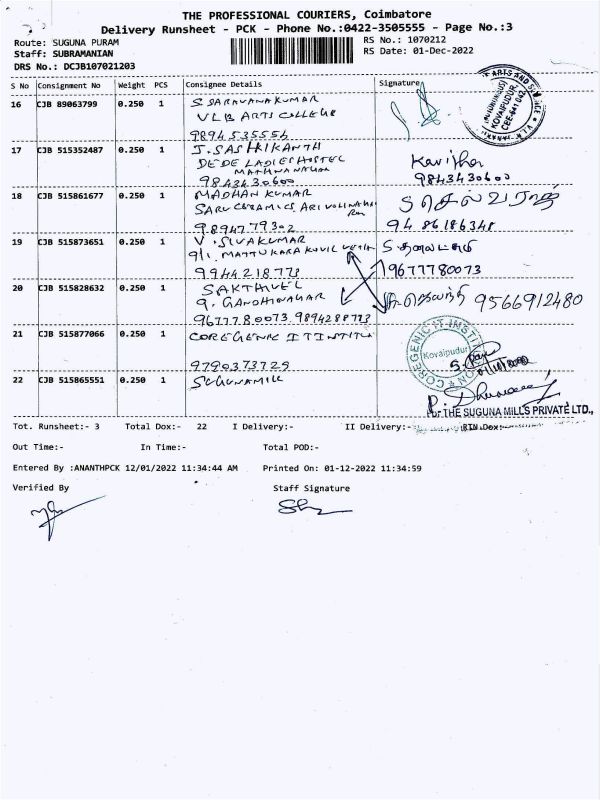 THE PROFESSIONAL COURIERS, Coimbatore
Delivery Runsheet - PCK - Phone No.:0422-3505555 - Page No.:3
Route: SUGUNA PURAM
RS No.: 1070212
Staff: SUBRAMANIAN
RS Date: 01-Dec-2022
DRS No.: DCJB107021203
S No Consignment No Weight PCS Consignee Details Signature
16 CJB 89063799 0.250 1 S SARAVANAKUMAR
VLB ARTS COLLEGE
9894535554
17 CJB 515352487 0.250 1 J. SASHIKANTH
DEDE LADIES HOSTEL
9843430600
Kavitha
9843430600
18 CJB 515861677 0.250 1 MADHAN KUMAR
SARU CERAMICS ARIVOLINAGAR
9894779302
செல்வராஜ்
9486186348
19 CJB 515873651 0.250 1 V. SIVAKUMAR
9/1 MATTUKARA KOVIL VEETHI
9944218773
9677780073
20 CJB 515828632 0.250 1 SAKTHIVEL
9. GANDHINAGAR
9677780073. 9894288773
9566912480
21 CJB 515877066 0.250 1 COREGENIC IT INSTITU
9790373729
COREGENIC IT INSTITUTION
Kovaipudur
22 CJB 515865551 0.250 1 SUGUNA MILL
For THE SUGUNA MILLS PRIVATE LTD.,
Tot. Runsheet:- 3 Total Dox:- 22 I Delivery:- II Delivery:- RTN Dox:-
Out Time:- In Time:- Total POD:-
Entered By :ANANTHPCK 12/01/2022 11:34:44 AM Printed On: 01-12-2022 11:34:59
Verified By Staff Signature